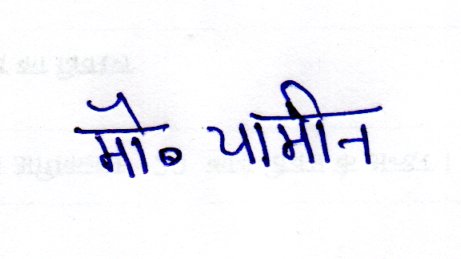 मौ० यामीन